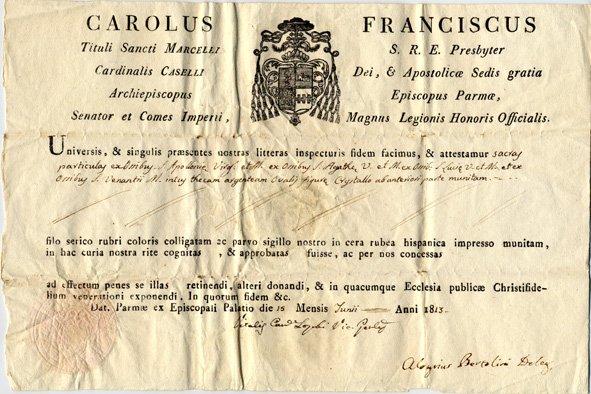 CAROLUS FRANCISCUS
Tituli Sancti MARCELLI S. R. E. Presbyter
Cardinalis CASELLI Dei, & Apostolicæ Sedis gratia
Archiepiscopus Episcopus Parmæ,
Senator et Comes Imperii, Magnus Legionis Honoris Officialis.
Universis, & singulis præsentes nostras litteras inspecturis fidem facimus, & attestamur sacras
particulas ex Ossibus S. Apoloniæ Virg. et M. ex Ossibus S. Agathæ V. et M. ex Ossib. S. Luciæ V. et M. et ex
Ossibus S. Venantii M. intus thecam argenteam Ovalis figuræ Crystallo ab anteriori parte munitam.
filo serico rubri coloris colligatam ac parvo sigillo nostro in cera rubea hispanica impresso munitam,
in hac curia nostra rite cognitas , & approbatas fuisse, ac per nos concessas
ad effectum penes se illas retinendi, alteri donandi, & in quacumque Ecclesia publicæ Christifide-
lium venerationi exponendi, In quorum fidem &c.
Dat. Parmæ ex Episcopali Palatio die 15 Mensis Junii Anni 1813.
Vic. Genlis
Aloysius Bertolini Deleg.